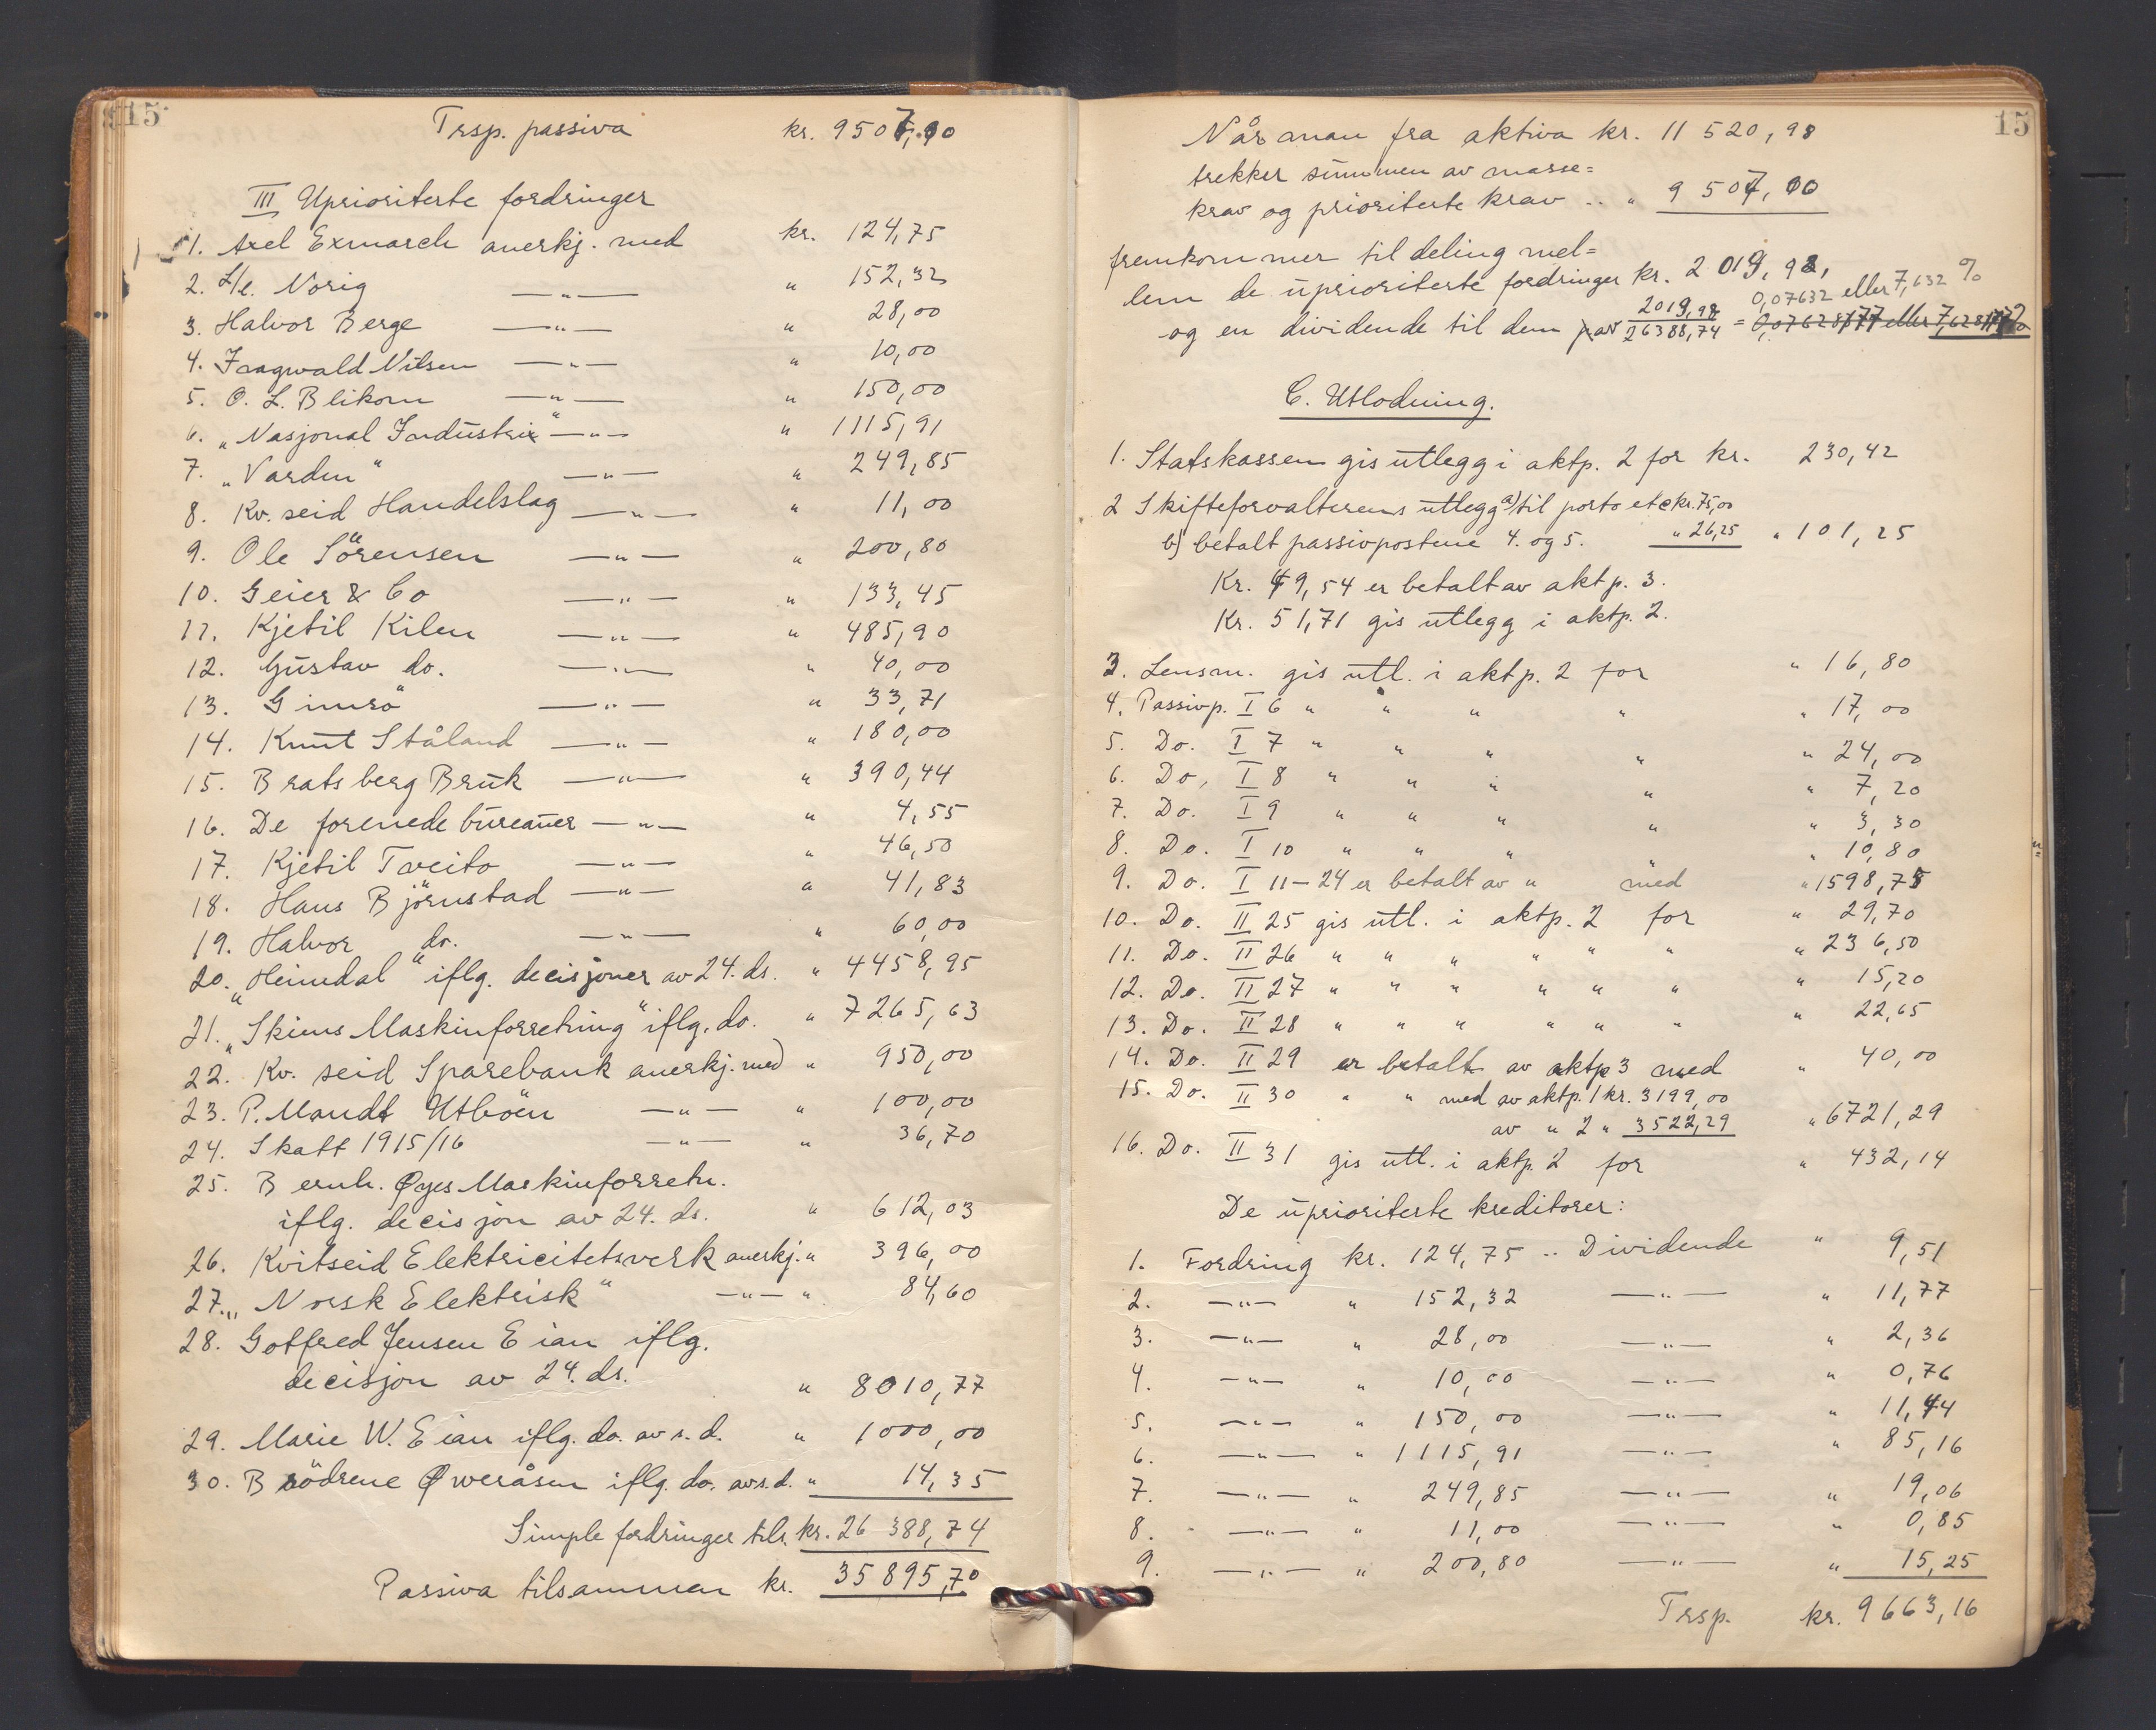 15
Trsp. passiva kr. 9507,00
III Uprioriterte fordringer
1. Axel Exmarch anerkj. med kr. 124,75
2. L/l. Norig —"— " 152,32
3. Halvor Berge —"— " 28,00
4. Ingwald Nilsen —"— " 10,00
5. O. L. Blikom —"— " 150,00
6. „Nasjonal Industri" —"— " 1115,91
7. „Varden" —"— " 249,85
8. Kv.seid Handelslag —"— " 11,00
9. Ole Sörensen —"— " 200,80
10. Geier & Co —"— " 133,45
11. Kjetil Kilen —"— " 485,90
12. Gustav do. —"— " 40,00
13. Gimsö —"— " 33,71
14. Knut Ståland —"— " 180,00
15. Bratsberg Bruk —"— " 390,44
16. De forenede bureauer —"— " 4,55
17. Kjetil Tveito —"— " 46,50
18. Hans Björnstad —"— " 41,83
19. Halvor do. —"— " 60,00
20. „Heimdal" iflg. decisjoner av 24. ds. " 4458,95
21. „Skiens Maskinforretning" iflg. do. " 7265,63
22. Kv. seid Sparebank anerkj. med " 950,00
23. P. Mandt Utböen —"— " 100,00
24. Skatt 1915/16 —"— " 36,70
25. Bernh. Øyes Maskinforretn.
iflg. decisjon av 24. ds. " 612,03
26. Kvitseid Elektricitetsverk anerkj. " 396,00
27. „Norsk Elektrisk" —"— " 84,60
28. Gotfred Jensen Eian iflg.
decisjon av 24. ds. " 8010,77
29. Marie W. Eian iflg. do. av s. d. " 1000,00
30. Brödrene Øveråsen iflg. do. av s. d. " 14,35
Simple fordringer tils. kr. 26 388,74
Passiva tilsammen kr. 35895,70
15
Når man fra aktiva kr. 11 520,98
trekker summen av masse=
krav og prioriterte krav .. " 9 507,00
fremkommer til deling mel=
lem de uprioriterte fordringer kr. 2 019,98,
0,07632 eller 7,632 %
og en dividende til dem på 2019,98/26388,74 =
C. Utlodning.
1. Statskassen gis utlegg i aktp. 2 for kr. 230,42
2 Skifteforvalterens utlegg a) til porto etc kr. 75,00
b) betalt passivpostene 4. og 5. " 26,25 " 101,25
Kr. 49,54 er betalt av aktp. 3.
Kr. 51,71 gis utlegg i aktp. 2.
3. Lensm. gis utl. i aktp. 2 for " 16,80
4. Passivp. I 6 " " " " " 17,00
5. Do. I 7 " " " " " 24,00
6. Do. I 8 " " " " " 7,20
7. Do. I 9 " " " " " 3,30
8. Do. I 10 " " " " 10,80
9. Do. I 11–24 er betalt av " med " 1598,75
10. Do. II 25 gis utl. i aktp. 2 for " 29,70
11. Do. II 26 " " " " " " " 236,50
12. Do. II 27 " " " " " " " 15,20
13. Do. II 28 " " " " " " " 22,65
14. Do. II 29 er betalt av aktp 3 med " 40,00
15. Do. II 30 " " med av aktp. 1 kr. 3199,00
av " 2 " 3522,29 " 6721,29
16. Do. II 31 gis utl. i aktp. 2 for " 432,14
De uprioriterte kreditorer:
1. Fordring kr. 124,75 .. Dividende " 9,51
2. —"— " 152,32 —"— " 11,77
3. —"— " 28,00 —"— " 2,36
4. —"— " 10,00 —"— " 0,76
5. —"— " 150,00 —"— " 11,44
6. —"— " 1115,91 —"— " 85,16
7. —"— " 249,85 —"— " 19,06
8. —"— " 11,00 —"— " 0,85
9. —"— " 200,80 —"— " 15,25
Trsp. kr. 9663,16